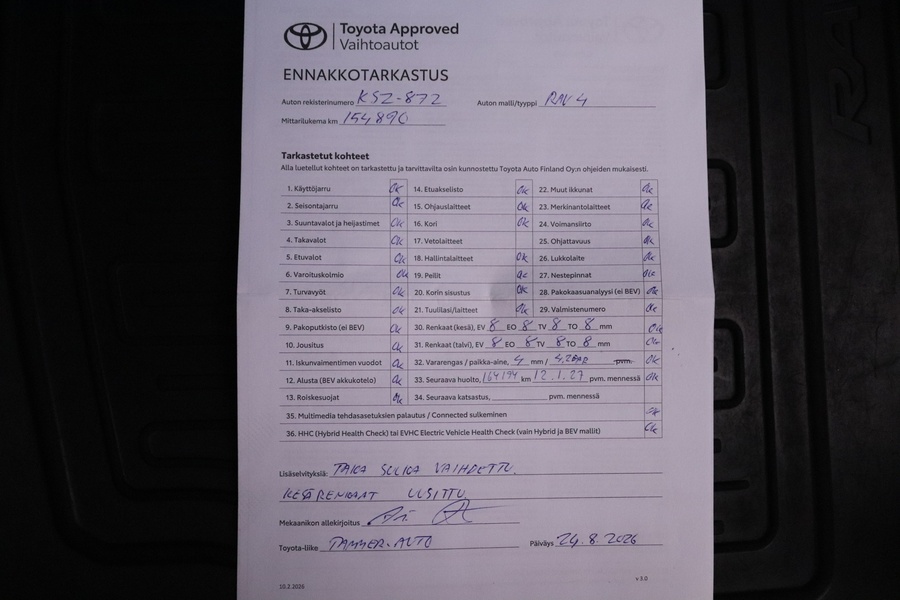 Toyota Approved
Vaihtoautot
ENNAKKOTARKASTUS
Auton rekisterinumero KSZ-872 Auton malli/tyyppi RAV 4
Mittarilukema km 154890
Tarkastetut kohteet
Alla luetellut kohteet on tarkastettu ja tarvittavilta osin kunnostettu Toyota Auto Finland Oy:n ohjeiden mukaisesti.
1. Käyttöjarru Ok 14. Etuakselisto Ok 22. Muut ikkunat Ok
2. Seisontajarru Ok 15. Ohjauslaitteet Ok 23. Merkinantolaitteet Ok
3. Suuntavalot ja heijastimet Ok 16. Kori Ok 24. Voimansiirto Ok
4. Takavalot Ok 17. Vetolaitteet 25. Ohjattavuus Ok
5. Etuvalot Ok 18. Hallintalaitteet Ok 26. Lukkolaite Ok
6. Varoituskolmio Ok 19. Peilit Ok 27. Nestepinnat Ok
7. Turvavyöt Ok 20. Korin sisustus Ok 28. Pakokaasuanalyysi (ei BEV) Ok
8. Taka-akselisto Ok 21. Tuulilasi/laitteet Ok 29. Valmistenumero Ok
9. Pakoputkisto (ei BEV) Ok 30. Renkaat (kesä), EV 8 EO 8 TV 8 TO 8 mm Ok
10. Jousitus Ok 31. Renkaat (talvi), EV 8 EO 8 TV 8 TO 8 mm Ok
11. Iskunvaimentimen vuodot Ok 32. Vararengas / paikka-aine, 4 mm / 4,2BAR pvm. Ok
12. Alusta (BEV akkukotelo) Ok 33. Seuraava huolto, 164194 km 12.1.27 pvm. mennessä Ok
13. Roiskesuojat Ok 34. Seuraava katsastus, pvm. mennessä
35. Multimedia tehdasasetuksien palautus / Connected sulkeminen Ok
36. HHC (Hybrid Health Check) tai EVHC Electric Vehicle Health Check (vain Hybrid ja BEV mallit) Ok
Lisäselvityksiä: TAKA SULKA VAIHDETTU.
KESÄRENKAAT UUSITTU.
Mekaanikon allekirjoitus
Toyota-liike TAMMER-AUTO Päiväys 24.8.2026
10.2.2026 v 3.0